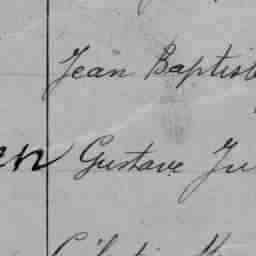 Jean Baptiste
en Gustave Ju